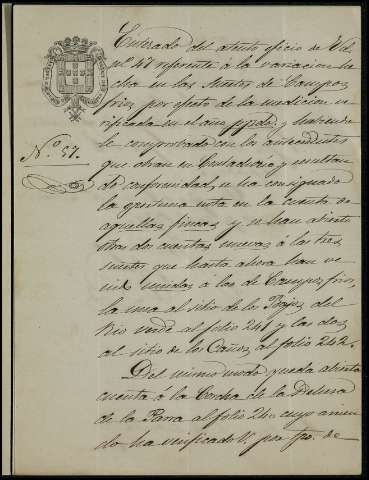 Enterado del atento oficio de Vd.
nº 47 referente á la variacion he
cha en las Suertes de Campoz
frio, por efecto de la medicion ve
rificada en el año ppdo; y habiendo
Nº 57.
se comprobado con los antecedentes
que obran en Contaduria y resultan
do conformidad, se ha consignado
la oportuna nota en la cuenta de
aquellas fincas y se han abierto
otras dos cuentas nuevas á las tres
suertes que hasta ahora han ve
nido unidas á las de Campozfrio,
la una al sitio de los Pozos del
Rio verde al folio 241 y las dos
al sitio de los Caños al folio 242.
Del mismo modo queda abierta
cuenta á la Cocha de la Dehesa
de la Parra al folio 240 cuyo arrien
do ha verificado V. por tpo. de